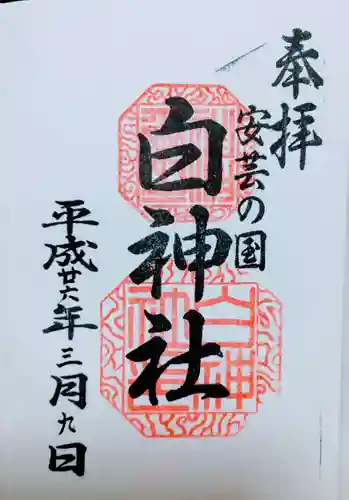 奉拝
安芸の国
白神社
平成廿六年三月九日
白神
社印